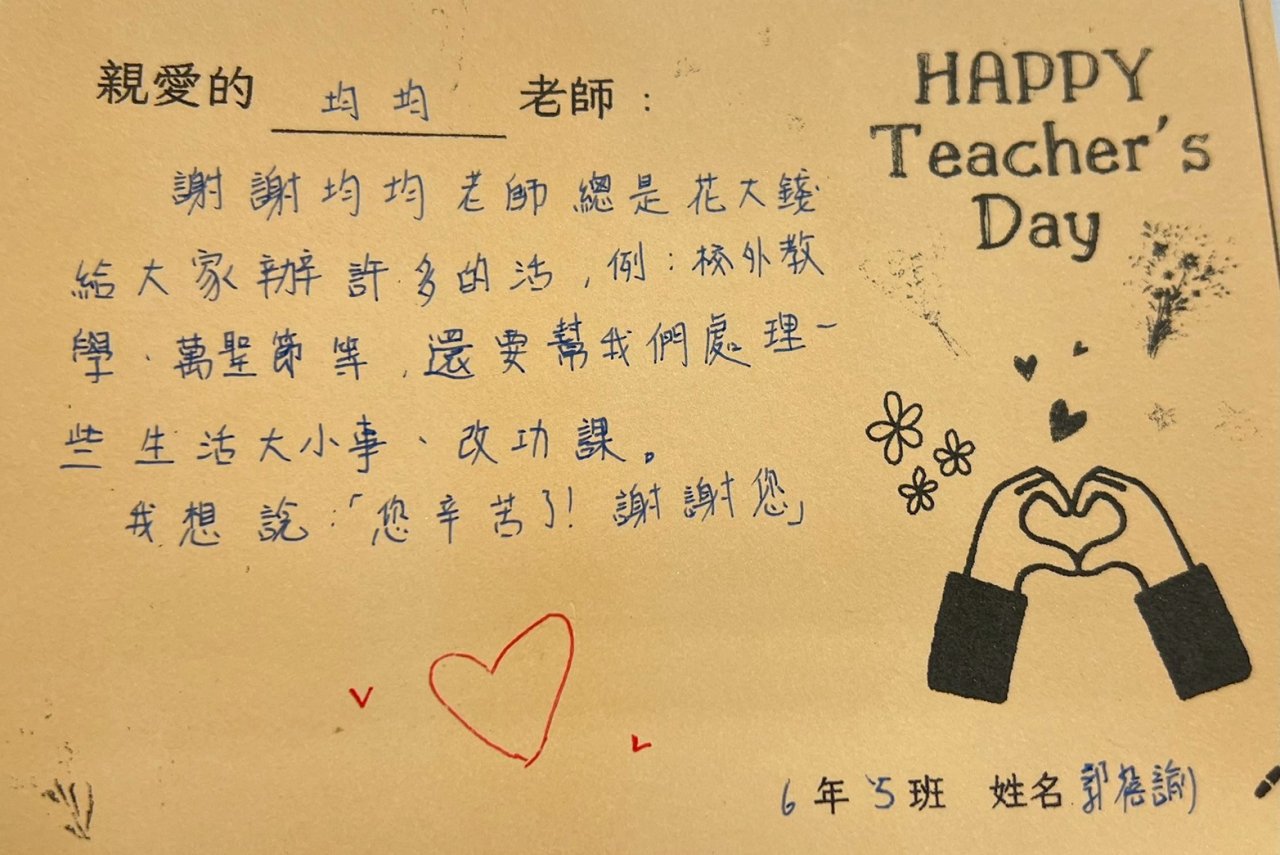 親愛的 均均 老師：
HAPPY
Teacher's
Day
謝謝均均老師總是花大錢
給大家辦許多的活，例：校外教
學、萬聖節等，還要幫我們處理一
些生活大小事、改功課。
我想說：「您辛苦了！謝謝您」
6年5班 姓名 郭